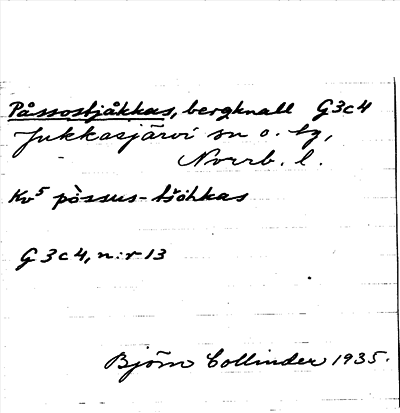 Påssostjåkkas, bergknall G3c4
Jukkasjärvi sn o. tg,
Norrb. l.
Kv5 pòssus-tšöhkas
G3c4, n:r 13
Björn Collinder 1935.